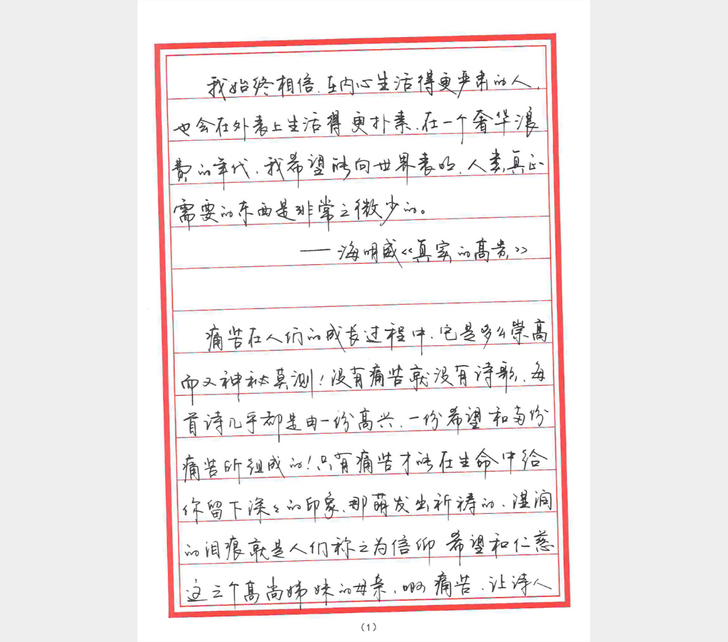 我始终相信,在内心生活得更严肃的人,
也会在外表上生活得更朴素,在一个奢华浪
费的年代,我希望能向世界表明,人类真正
需要的东西是非常之微少的。
——海明威《真实的高贵》
痛苦在人们的成长过程中,它是多么崇高
而又神秘莫测!没有痛苦就没有诗歌,每
首诗几乎都是由一份高兴,一份希望和两份
痛苦所组成的!只有痛苦才能在生命中给
你留下深々的印象,那萌发出祈祷的,湿润
的泪痕就是人们称之为信仰 希望和仁慈
这三个高尚姊妹的母亲,啊 痛苦,让诗人
(1)